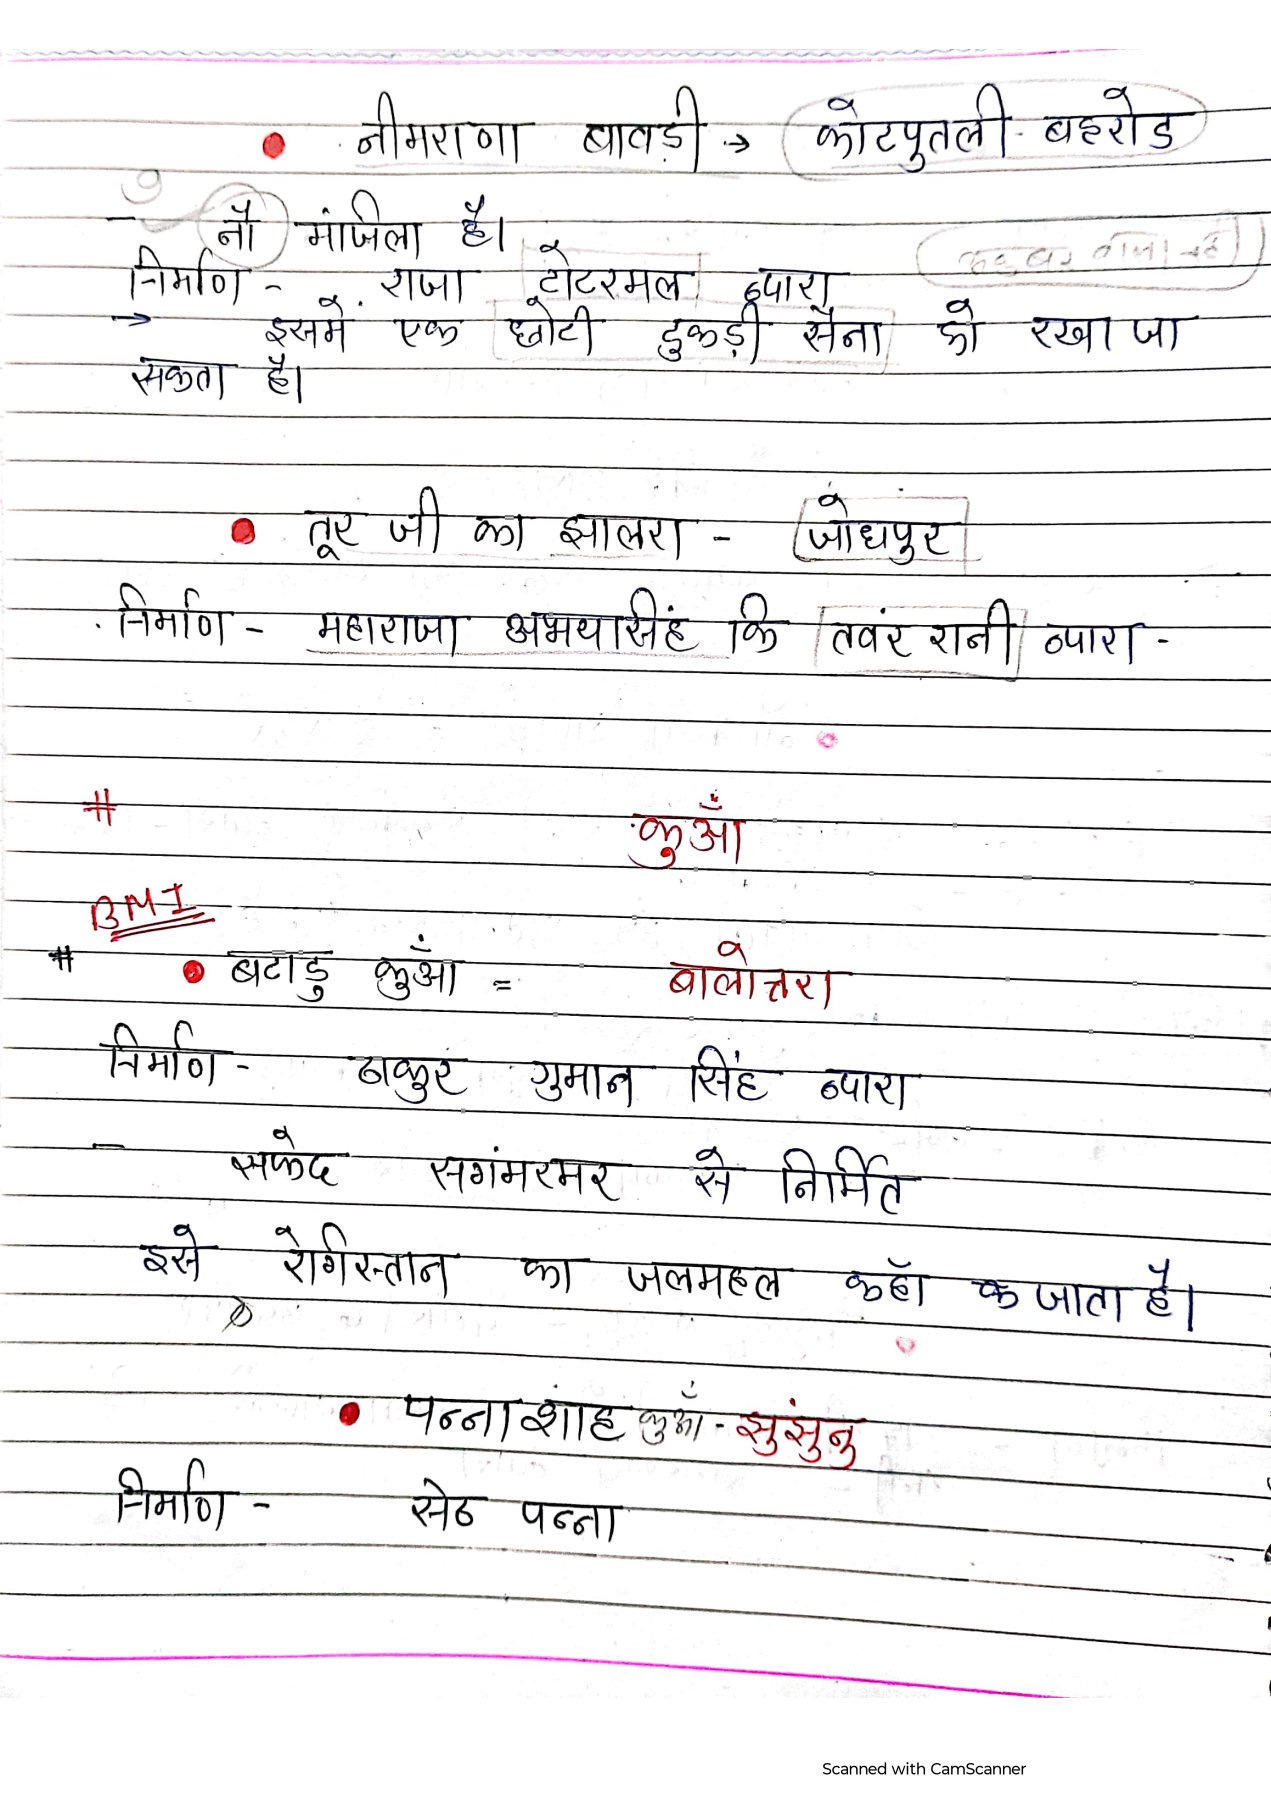 ● नीमराणा बावड़ी → कोटपुतली - बहरोड
9
- नौ मंजिला है।
निर्माण - राजा टोटरमल द्वारा
→ इसमें एक छोटी टुकड़ी सैना को रखा जा
सकता है।
● तूर जी का झालरा - जोधपुर
निर्माण - महाराजा अभयसिंह कि तवंर रानी द्वारा -
# कुआँ
BMI
# ● बटाडु कुआँ = बालोत्तरा
निर्माण - ठाकुर गुमान सिंह द्वारा
- सफेद सगंमरमर से निर्मित
इसे रेगिस्तान का जलमहल कहाँ जाता है।
● पन्ना शाह कुआँ - झुंझुनु
निर्माण - सेठ पन्ना
Scanned with CamScanner